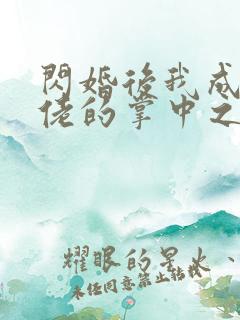 閃婚後我成
佬的掌中之
耀眼的星火、
未经同意禁止转载